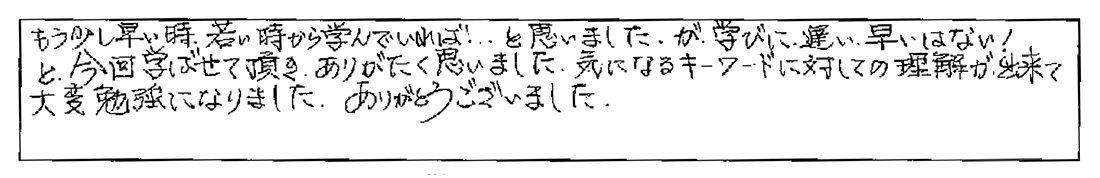 もう少し早い時、若い時から学んでいれば!..と思いました.が.学びに.遅い.早いはない!
と.今回学ばせて頂き.ありがたく思いました.気になるキーワードに対しての理解が出来て
大変勉強になりました.ありがとうございました.